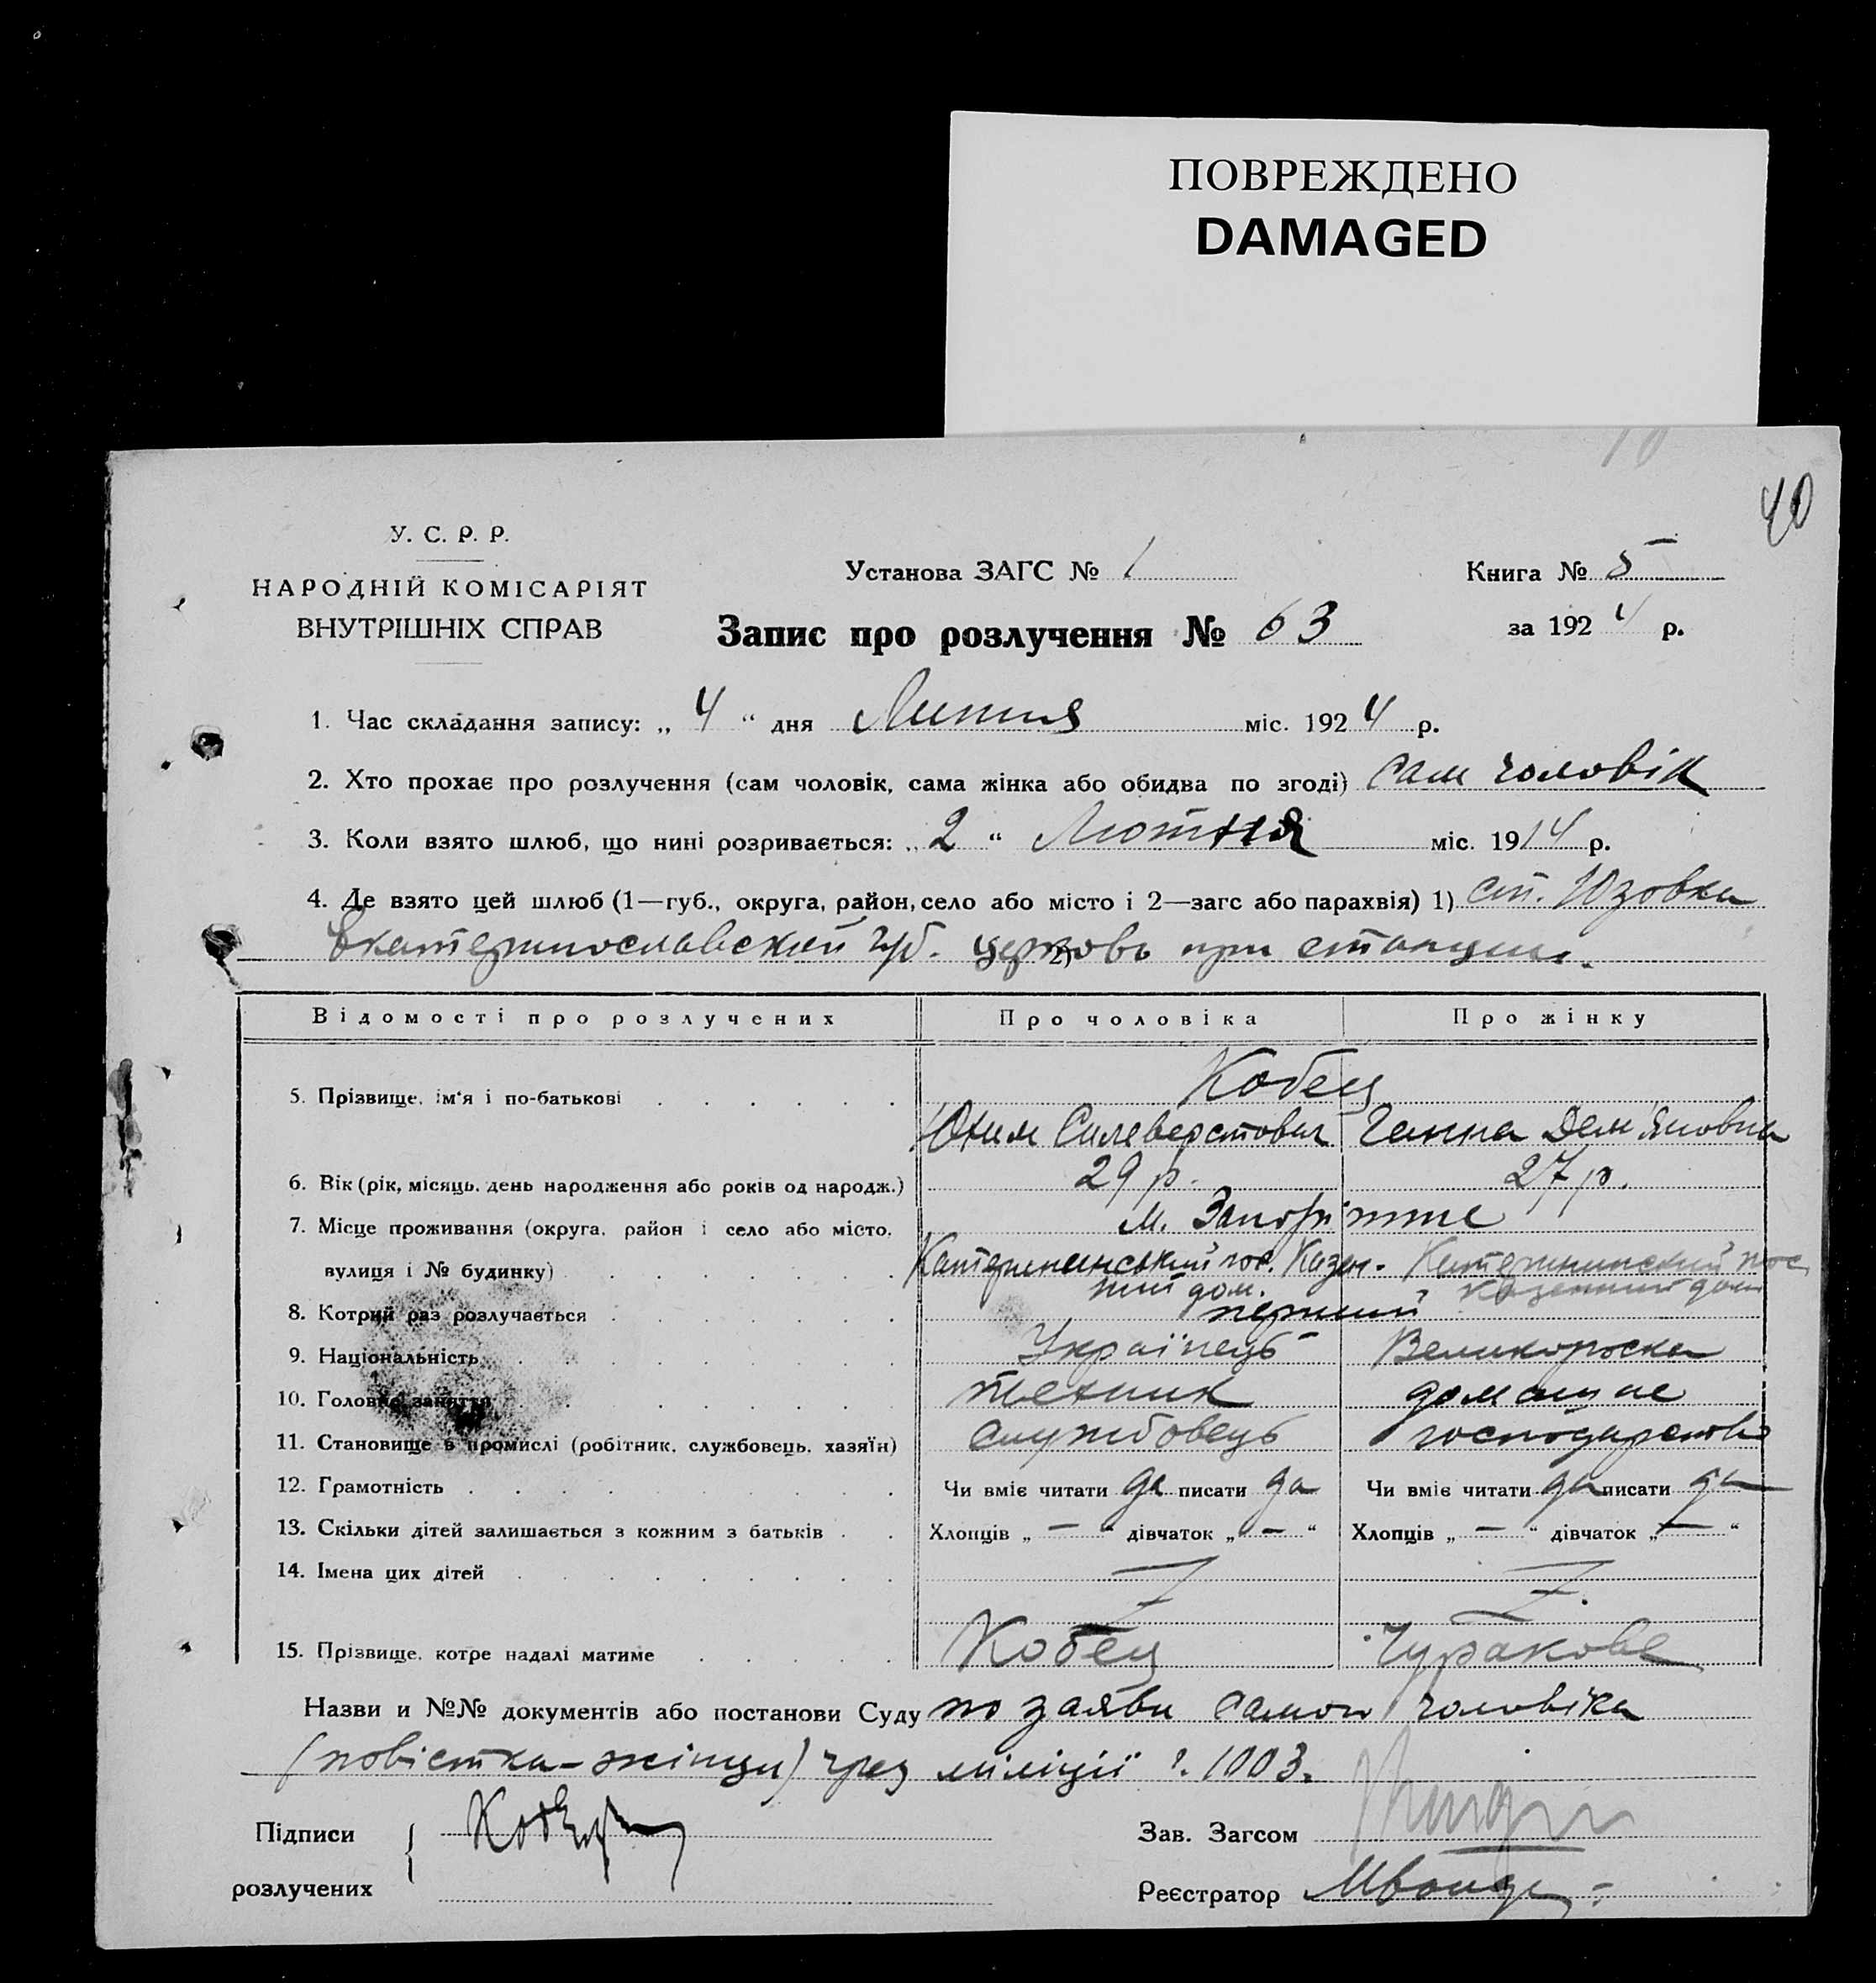 ПОВРЕЖДЕНО
DAMAGED
10
40
У. С. Р. Р.
НАРОДНІЙ КОМІСАРІЯТ
ВНУТРІШНІХ СПРАВ
Установа ЗАГС № 1
Книга № 5
за 1924 р.
Запис про розлучення № 63
1. Час складання запису: „ 4 “ дня Липня міс. 1924 р.
2. Хто прохає про розлучення (сам чоловік, сама жінка або обидва по згоді) сам чоловік
3. Коли взято шлюб, що нині розривається: „ 2 “ Лютня міс. 1914 р.
4. Де взято цей шлюб (1—губ., округа, район, село або місто і 2—загс або парахвія) 1) ст. Юзовка
Екатеринославской губ. 2) церковь при станции.
Відомості про розлучених Про чоловіка Про жінку
5. Прізвище, ім'я і по-батькові Кобец
Юхим Силеверстович Ганна Дем'яновна
6. Вік (рік, місяць, день народження або років од народж.) 29 р. 27 р.
7. Місце проживання (округа, район і село або місто, м. Запоріжже
вулиця і № будинку) Катерининський пос. Казен- Катерининский пос
ний дом. казенный дом
8. Котрий раз розлучається перший
9. Національність Українець Великороска
10. Головне заняття техник домашне
11. Становище в промислі (робітник, службовець, хазяїн) службовець господарство
12. Грамотність Чи вміє читати да писати да Чи вміє читати да писати да
13. Скільки дітей залишається з кожним з батьків Хлопців „ — “ дівчаток „ — “ Хлопців „ — “ дівчаток „ — “
14. Імена цих дітей
15. Прізвище, котре надалі матиме Кобец Чуракова
Назви и №№ документів або постанови Суду по заяви самого чоловіка
(повістка-жінци) чрез міліції 1003.
Підписи
розлучених
Зав. Загсом
Реєстратор